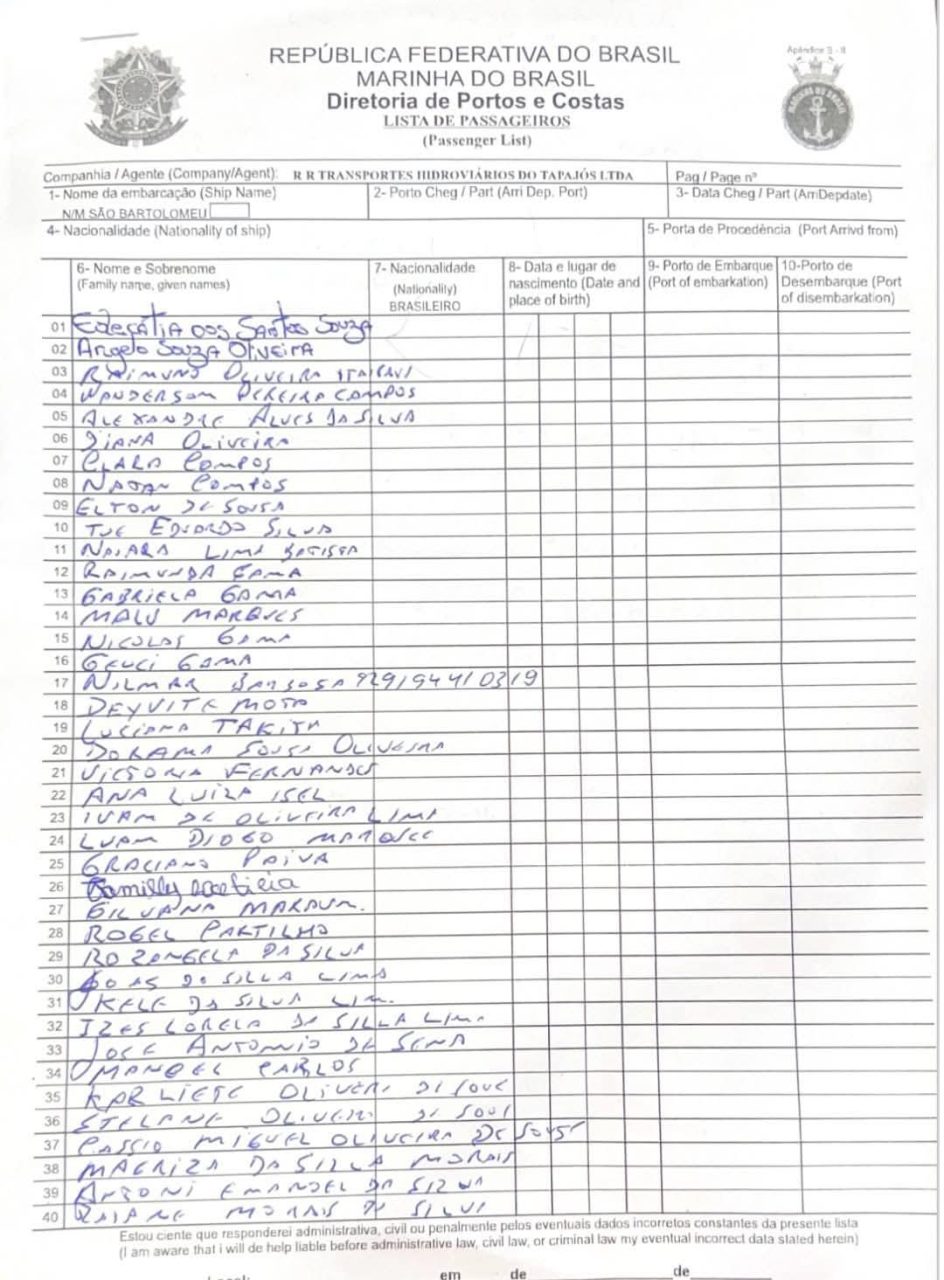 Apêndice 3 - II
REPÚBLICA FEDERATIVA DO BRASIL
MARINHA DO BRASIL
Diretoria de Portos e Costas
LISTA DE PASSAGEIROS
(Passenger List)
Companhia / Agente (Company/Agent): R R TRANSPORTES HIDROVIÁRIOS DO TAPAJÓS LTDA Pag / Page nº
1- Nome da embarcação (Ship Name) 2- Porto Cheg / Part (Arri Dep. Port) 3- Data Cheg / Part (ArriDepdate)
N/M SÃO BARTOLOMEU
4- Nacionalidade (Nationality of ship) 5- Porta de Procedência (Port Arrivd from)
6- Nome e Sobrenome (Family name, given names) 7- Nacionalidade (Nationality) BRASILEIRO 8- Data e lugar de nascimento (Date and place of birth) 9- Porto de Embarque (Port of embarkation) 10-Porto de Desembarque (Port of disembarkation)
01 dos Santos Souza
02 Angelo Souza Oliveira
03 RAIMUND OLIVEIRA
04 WANDERSON PEREIRA CAMPOS
05 ALEXANDRE ALVES DA SILVA
06 DIANA OLIVEIRA
07 CLARA COMPOS
08 NATAN COMPOS
09 ELTON DE SOUSA
10 EDUARDO SILVA
11 NAIARA LIMA BATISTA
12 RAIMUNDA GAMA
13 GABRIELA GAMA
14 MALU MARQUES
15 NICOLAS GAMA
16 GEUCI GAMA
17 NILMAR BARBOSA 929194410319
18 DEYVITE MOTA
19 LUCIANA TAKITA
20 DORAMA SOUSA OLIVEIRA
21 VICTORIA FERNANDES
22 ANA LUIZA ISEL
23 IVAM DE OLIVEIRA LIMA
24 LUAM DIOGO
25 GRACIANO PAIVA
26 Kamilly
27 GILVANA
28 ROGEL PARTILHO
29 ROZANGELA DA SILVA
30 DA SILLA LIMA
31 KELE DA SILVA LIM.
32 LORELA DA SILLA LIMA
33 JOSE ANTONIO DE SENA
34 MANOEL CARLOS
35 KARLIETE OLIVERI DE
36 STELANE
37 CASSIO MIGUEL OLIVEIRA DE
38 DA SILLA MORAIS
39 ANTONI EMANOEL DA SILVA
40 RAIANE MORAIS
Estou ciente que responderei administrativa, civil ou penalmente pelos eventuais dados incorretos constantes da presente lista
(I am aware that i will de help liable before administrative law, civil law, or criminal law my eventual incorrect data stated herein)
em de de